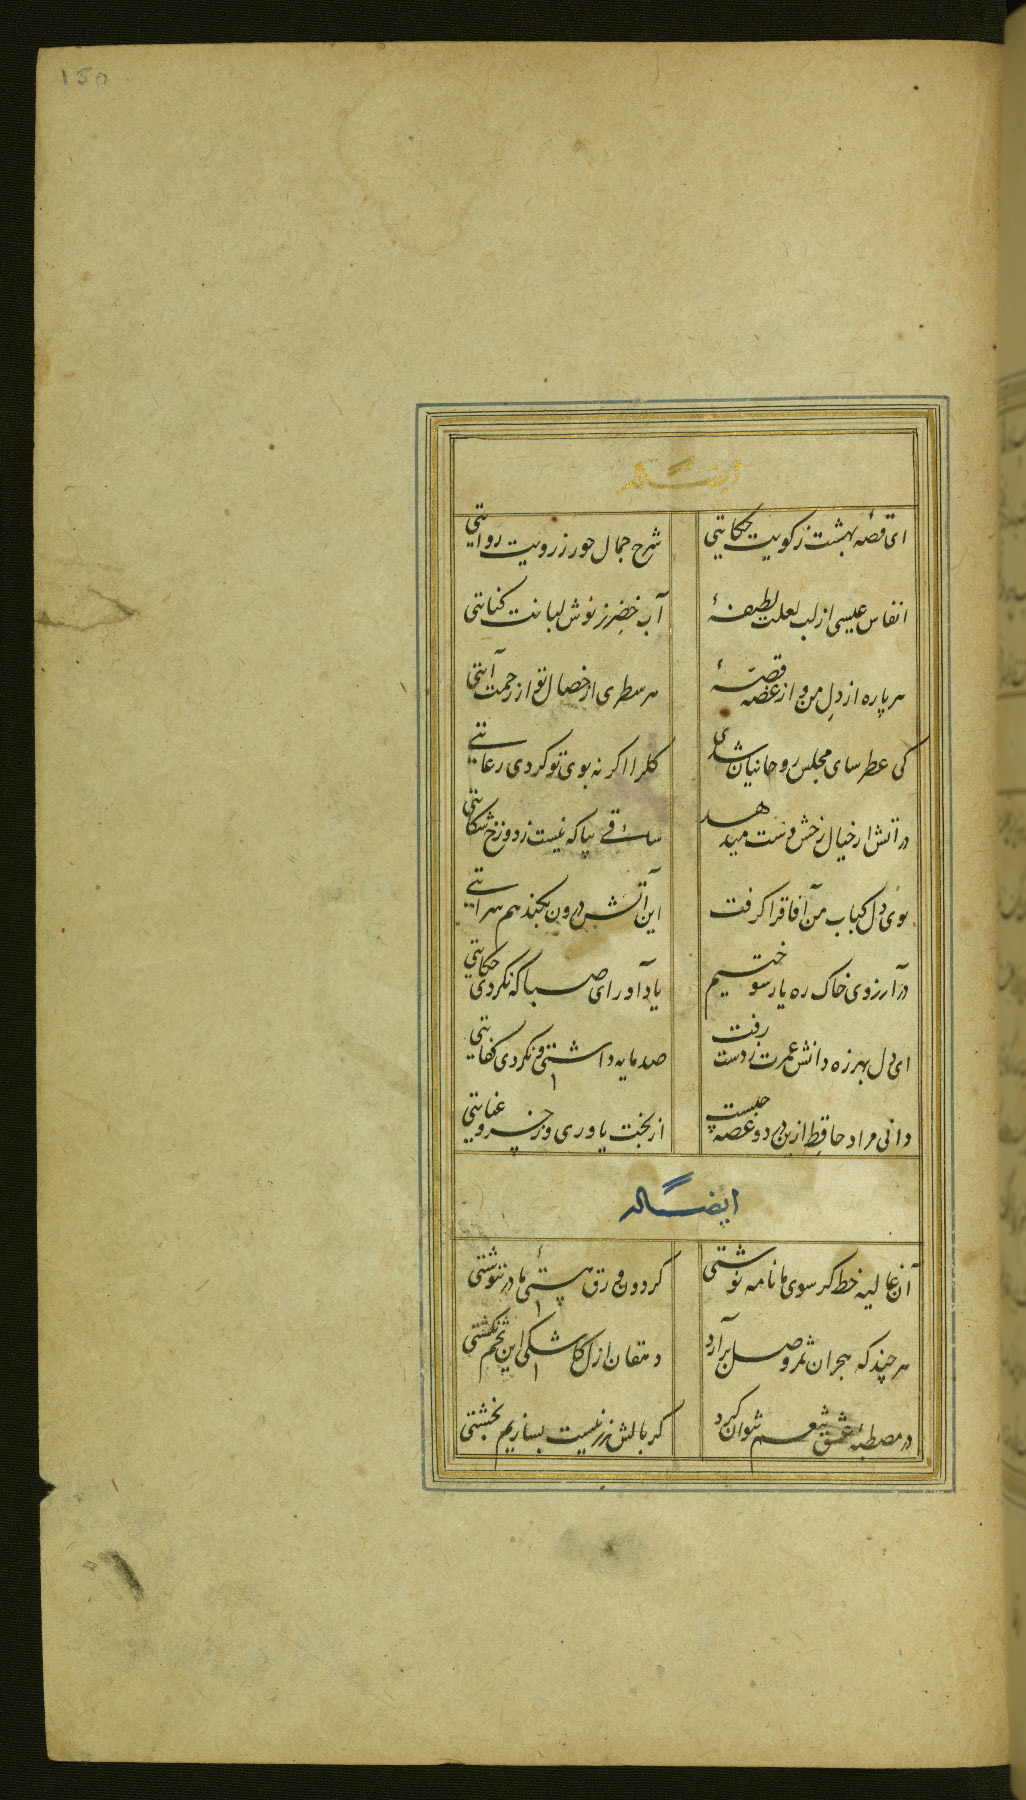 150
ایضاً له
ای قصهٔ بهشت ز کویت حکایتی شرح جمال حور ز رویت روایتی
انفاس عیسی از لب لعلت لطیفهٔ آب خضر ز نوش لبانت کنایتی
هر پاره از دل من و از غصه قصّهٔ هر سطری از خصال تو از رحمت آیتی
کی عطرسای مجلس روحانیان شدی کلرا اکر نه بوی تو کردی رعایتی
در آتش ار خیال رخش دست میدهد ساقی بیا که نیست ز دوزخ شکایتی
بوی دل کباب من آفاقرا کرفت این آتش درون بکند هم سرایتی
در آرزوی خاک ره یار سوختیم یاد آور ای صبا که نکردی حکایتی
ای دل بهرزه دانش عمرت ز دست رفت صد مایه داشتی و نکردی کفایتی
دانی مراد حافظ ازین درد و غصه چیست از بخت یاوری و ز خسرو عنایتی
ایضاً له
آن غالیه خط کر سوی ما نامه نوشتی کردون ورق هستی ما در ننوشتی
هر چند که هجران ثمر وصل برآرد دهقان ازل کاشکی این تخم نکشتی
در مصطبهٔ عشق تنعم نتوان کرد کر بالش زر نیست بسازیم بخشتی